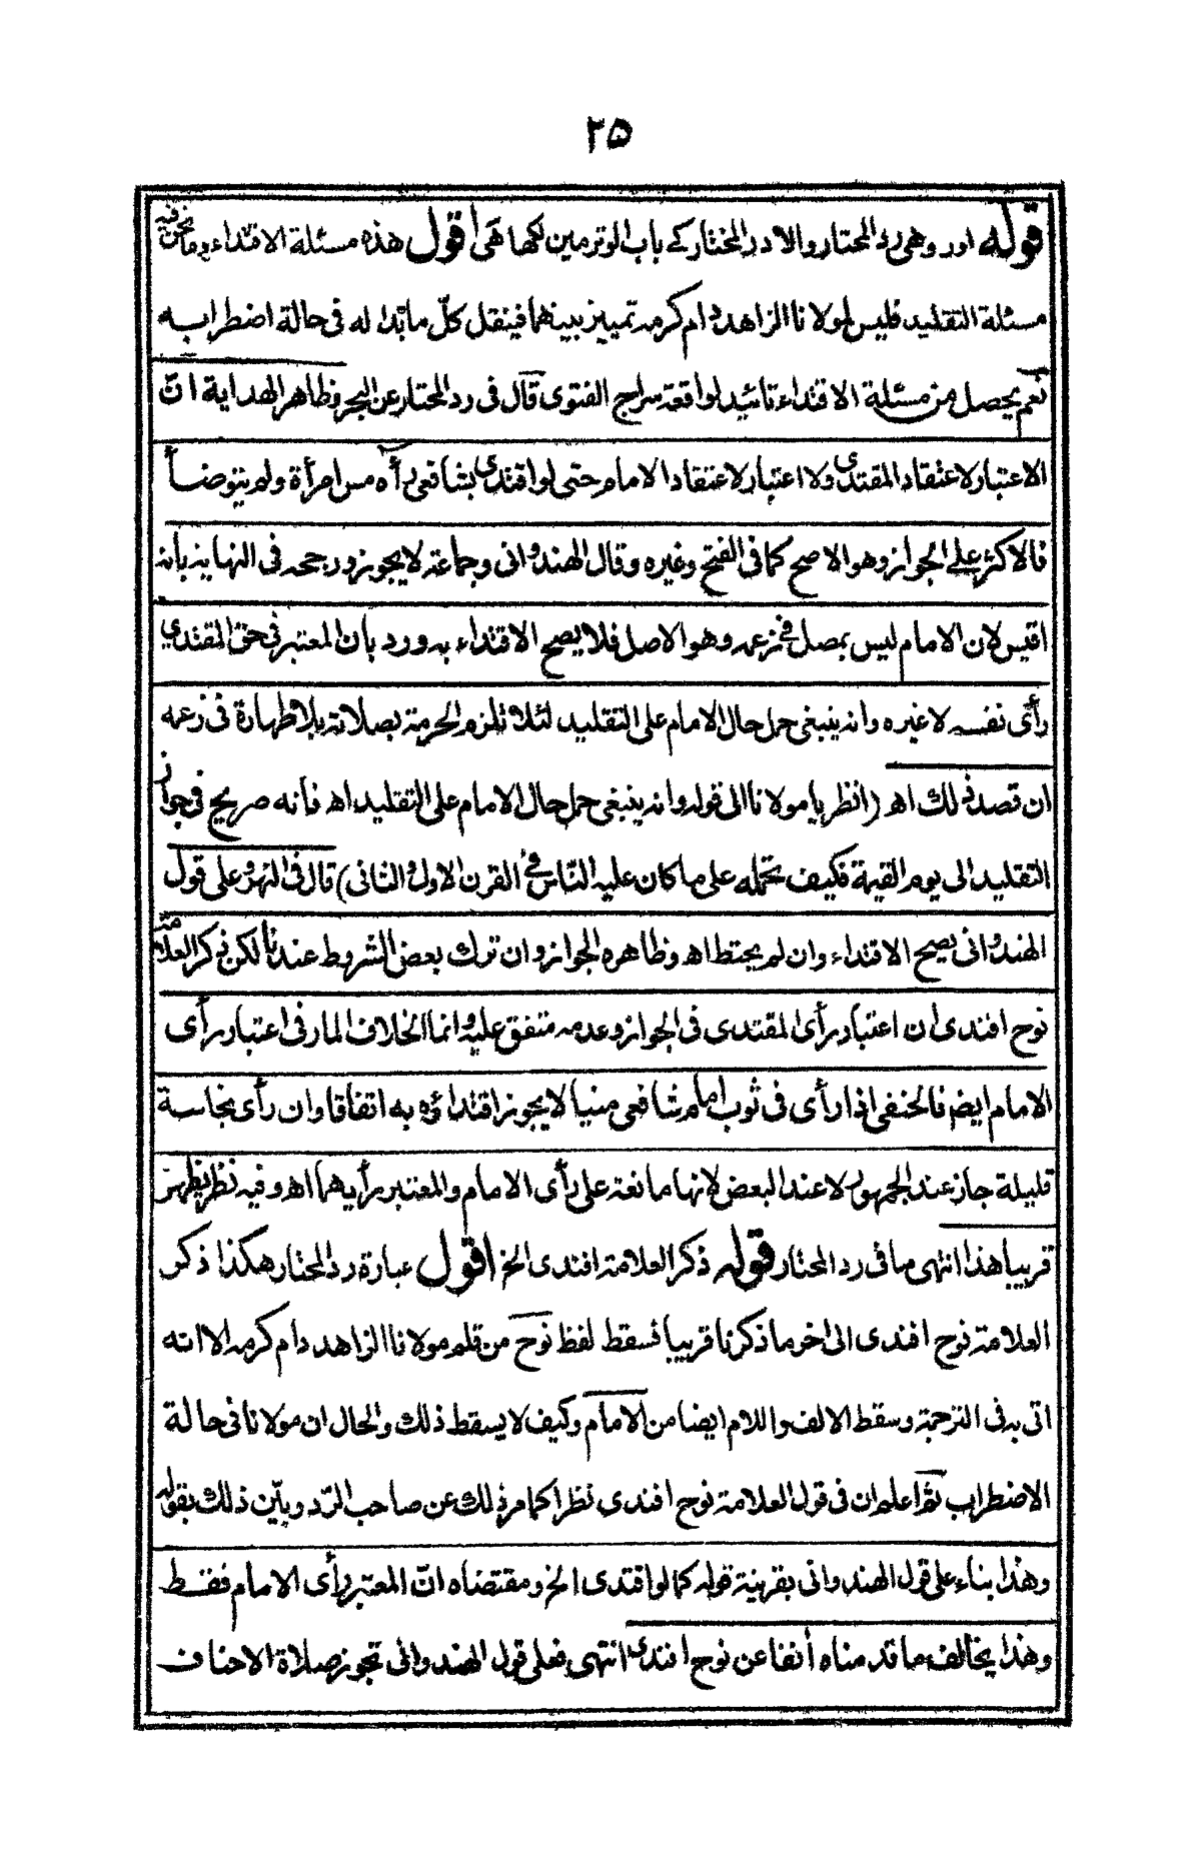 ٢٥
قوله اور وهی رد المحتار والا در المختار کے باب الوتر مین لکھا هَی اقول هذه مسئلة الاقتداء وما نحن فيه
مسئلة التقليد فليس لمولانا الزاهد دام كرمه تمييز بينهما فينقل كلّ ما بدا له فى حالة اضطرابه
نعم يحصل من مسئلة الاقتداء تائيد لواقعة سراج الفتوى قال فى رد المحتار عن البحر وظاهر الهداية انّ
الاعتبار لاعتقاد المقتدى ولا اعتبار لاعتقاد الامام حتى لو اقتدى بشافعى رأه مس امرأة ولم يتوضأ
فالاكثر على الجواز وهو الاصح كما فى الفتح وغيره وقال الهندوانى وجماعة لا يجوز ورجحه فى النهاية بانه
اقيس لان الامام ليس بمصل فى زعمه وهو الاصل فلا يصح الاقتداء به ورد بان المعتبر فى حق المقتدي
رأى نفسه لا غيره وانه ينبغى حمل حال الامام على التقليد لئلا تلزم الحرمة بصلاته بلا طهارة فى زعمه
ان قصد ذلك اھ (انظر يا مولانا الى قوله وانه ينبغى حمل حال الامام على التقليد اھ فأنه صريح فى جواز
التقليد الى يوم القيمة فكيف تحمله على ما كان عليه النّاس فى القرن الاول والثانى) قال فى النهر وعلى قول
الهندوانى يصح الاقتداء وان لم يحتط اھ وظاهره الجواز وان ترك بعض الشروط عندنا لكن ذكر العلامة
نوح افندى ان اعتبار رأى المقتدى فى الجواز وعدمه متفق عليه وانما الخلاف المار فى اعتبار رأى
الامام ايضا فالحنفى اذا رأى فى ثوب امام شافعى منيا لا يجوز اقتداؤه به اتفاقا وان رأى نجاسة
قليلة جاز عند الجمهور لا عند البعض لانها مانعة على رأى الامام والمعتبر رأيهما اھ وفيه نظر يظهر
قريبا هذا انتهى ما فى رد المحتار قوله ذكر العلامة افندى الخ اقول عبارة رد المحتار هكذا ذكر
العلامة نوح افندى الى اخر ما ذكرنا قريبا فسقط لفظ نوح من قلم مولانا الزاهد دام كرمه الا انه
اتى به فى الترجمة وسقط الالف واللام ايضا من الامام وكيف لا يسقط ذلك والحال ان مولانا فى حالة
الاضطراب ثم اعلم ان فى قول العلامة نوح افندى نظرا كما مر ذلك عن صاحب الرّد وبيّن ذلك بقوله
وهذا بناء على قول الهندوانى بقرينة قوله كما لو اقتدى الخ ومقتضاه انّ المعتبر رأى الامام فقط
وهذا يخالف ما قدمناه أنفا عن نوح افندى انتهى فعلى قول الهندوانى تجوز صلاة الاحناف